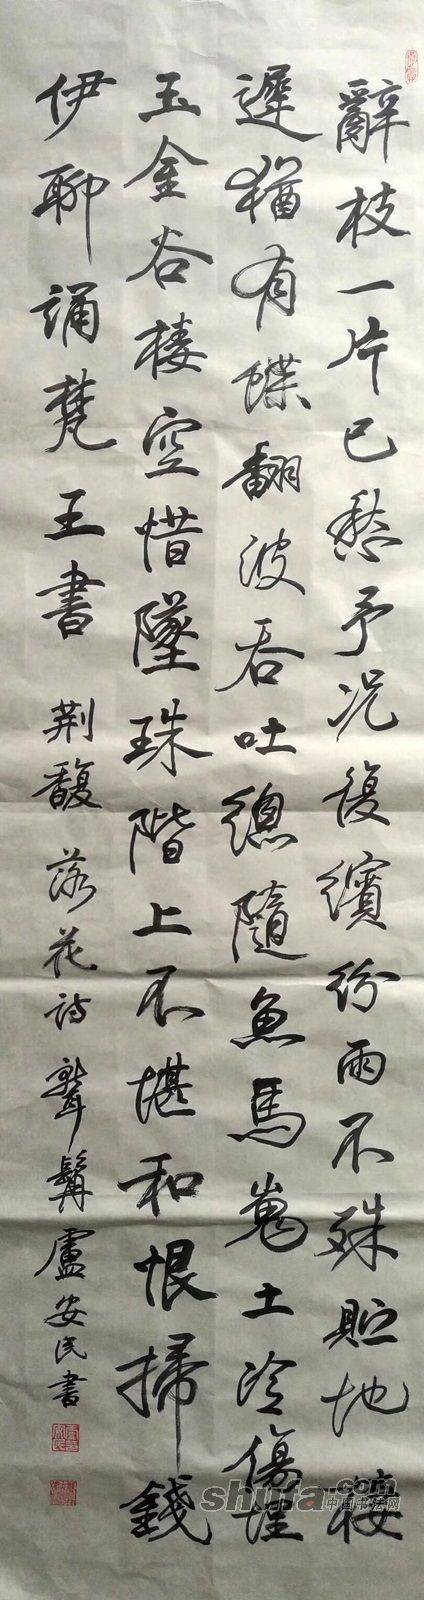 辭枝一片已愁予况復繽紛雨不殊貯地接
遲猶有蝶翻波吞吐總隨魚馬嵬土冷傷埋
玉金谷樓空惜墜珠階上不堪和恨掃錢
伊聊誦梵王書 荆馥落花詩 聾髯盧安民書
shufa.com
中国书法网